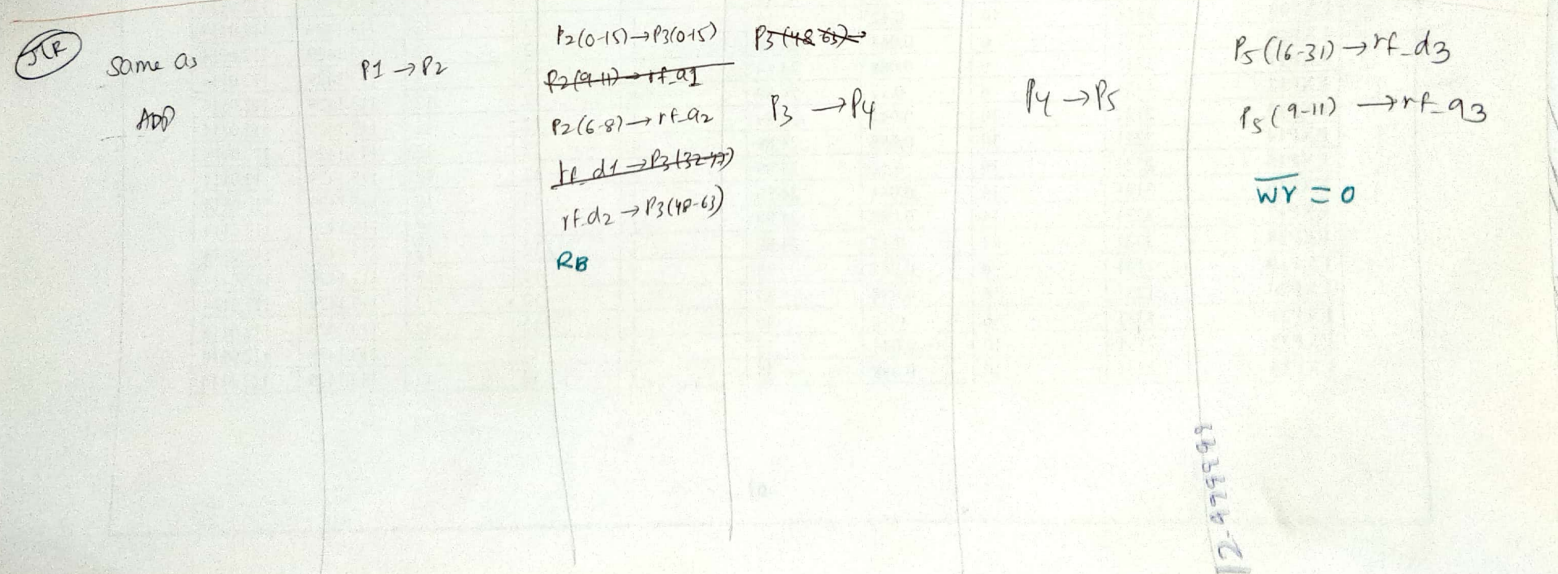 JLR
Same as
ADD
P1 → P2
P2(0-15) → P3(0-15)
P2(9-11) → rf_a1
P2(6-8) → rf_a2
rf_d1 → P3(32-47)
rf_d2 → P3(48-63)
RB
P3(48-63) →
P3 → P4
P4 → P5
P5(16-31) → rf_d3
P5(9-11) → rf_a3
WR = 0